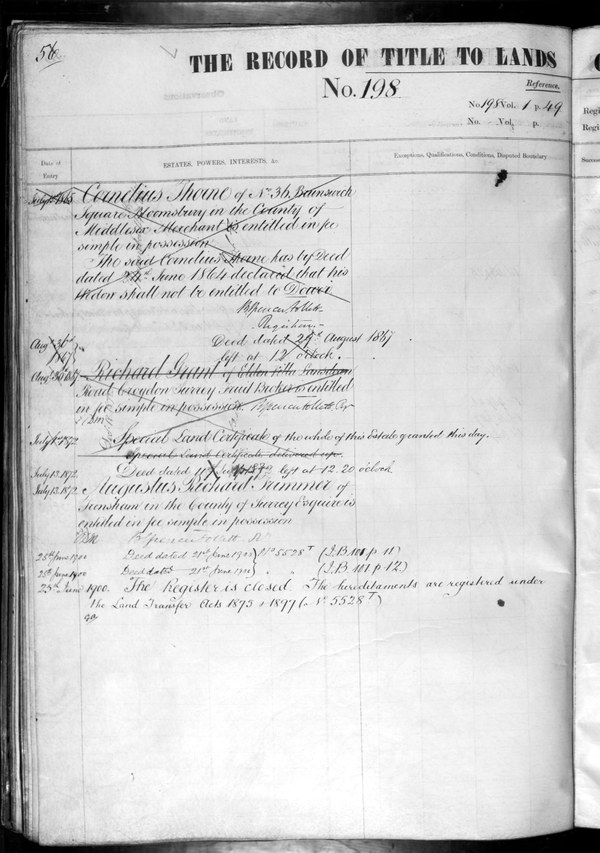 56
THE RECORD OF TITLE TO LANDS
No. 198
Reference.
No. 198 Vol. 1 p. 49
No. Vol. p.
Date of Entry
ESTATES, POWERS, INTERESTS, &c.
Exceptions, Qualifications, Conditions, Disputed Boundary
1865 Cornelius Thorne of No. 36 Brunswick
Square Bloomsbury in the County of
Middlesex Merchant is entitled in fee
simple in possession
The said Cornelius Thorne has by Deed
dated 24th June 1864 declared that his
Widow shall not be entitled to Dower
Brent Spencer Follett
Registrar
Augt 30th 1867 Deed dated 29th August 1867
left at 12 o'clock.
Augt 30th 1867 Richard Grant of
Road Croydon Surrey Fruit Broker is entitled
in fee simple in possession. B Spencer Follett Regr
July 1872 Special Land Certificate of the whole of this Estate granted this day.
Special Land Certificate delivered up.
July 13. 1872 Deed dated 11 July 1872 left at 12.20 o'clock
July 13. 1872 Augustus Richard Trimmer of
in the County of Surrey Esquire is
entitled in fee simple in possession
B Spencer Follett Rr
25th June 1900 Deed dated 21st June 1900 } No 5528T (I.B 101 p 11)
25th June 1900 Deed dated 21st June 1900 } " " (I.B 101 p 12)
25th June 1900. The Register is closed The hereditaments are registered under
the Land Transfer Acts 1875 & 1897 (No 5528T)